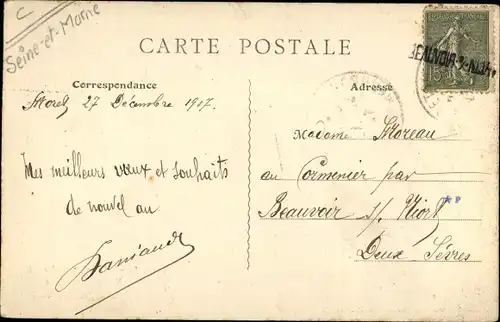 C
Seine-et-Marne
CARTE POSTALE
Correspondance
Adresse
BEAUVOIR-S-NIORT
15
Moret 27 Décembre 1917.
Mes meilleurs vœux et souhaits
de nouvel an
Madame Moreau
au Cormenier par
Beauvoir s/ Niort
Deux Sèvres